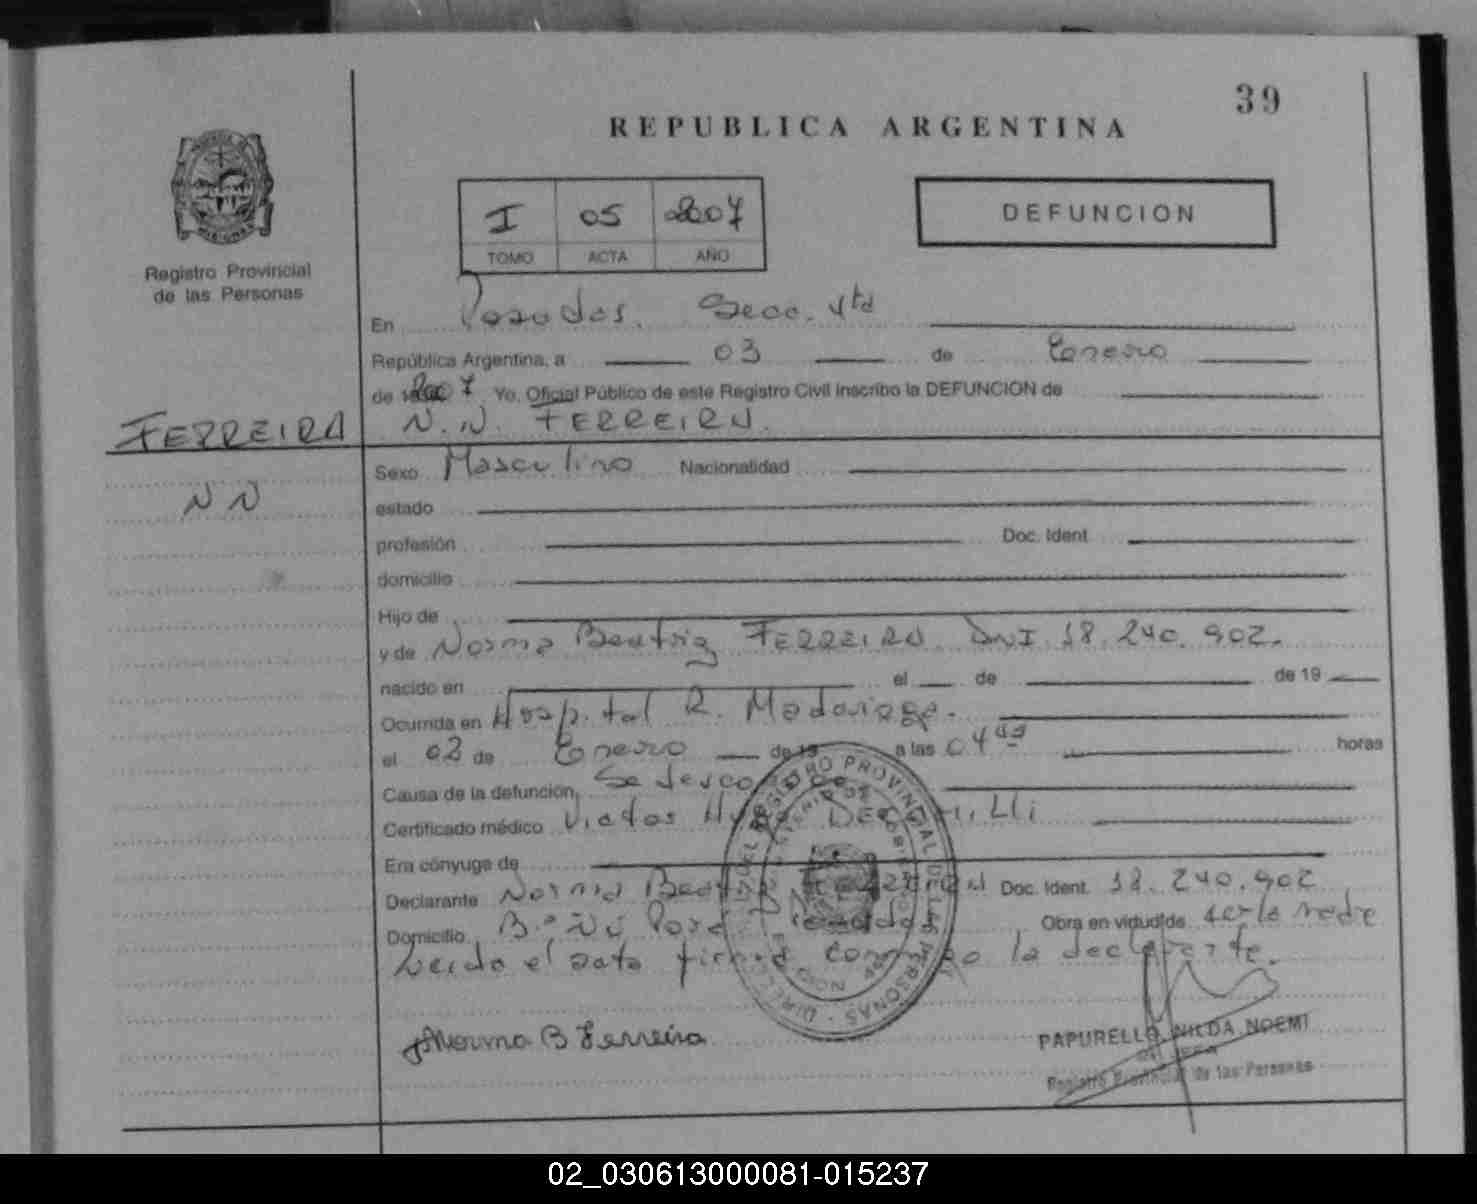 39
REPUBLICA ARGENTINA
I 05 2007
TOMO ACTA AÑO
DEFUNCION
Registro Provincial
de las Personas
En Posadas. Secc. 4ta
República Argentina, a 03 de Enero
de 2007 Yo, Oficial Público de este Registro Civil inscribo la DEFUNCION de
FERREIRA N.N. FERREIRA.
N N
Sexo Masculino Nacionalidad
estado
profesión Doc. Ident
domicilio
Hijo de
y de Norma Beatriz FERREIRA DNI 18.240.902.
nacido en el de de 19
Ocurrida en Hospital R. Madariaga.
el 02 de Enero de 19 a las 04 horas
Causa de la defunción Se desconoce
Certificado médico Victor Hugo
Era cónyuge de
Declarante Norma Beatriz FERREIRA Doc. Ident. 18.240.902
Domicilio Posadas Obra en virtud de ser la madre
Leido el acta firma conmigo la declarante.
Norma B Ferreira
PAPURELLO NILDA NOEMI
Registro Provincial de las Personas
02_030613000081-015237